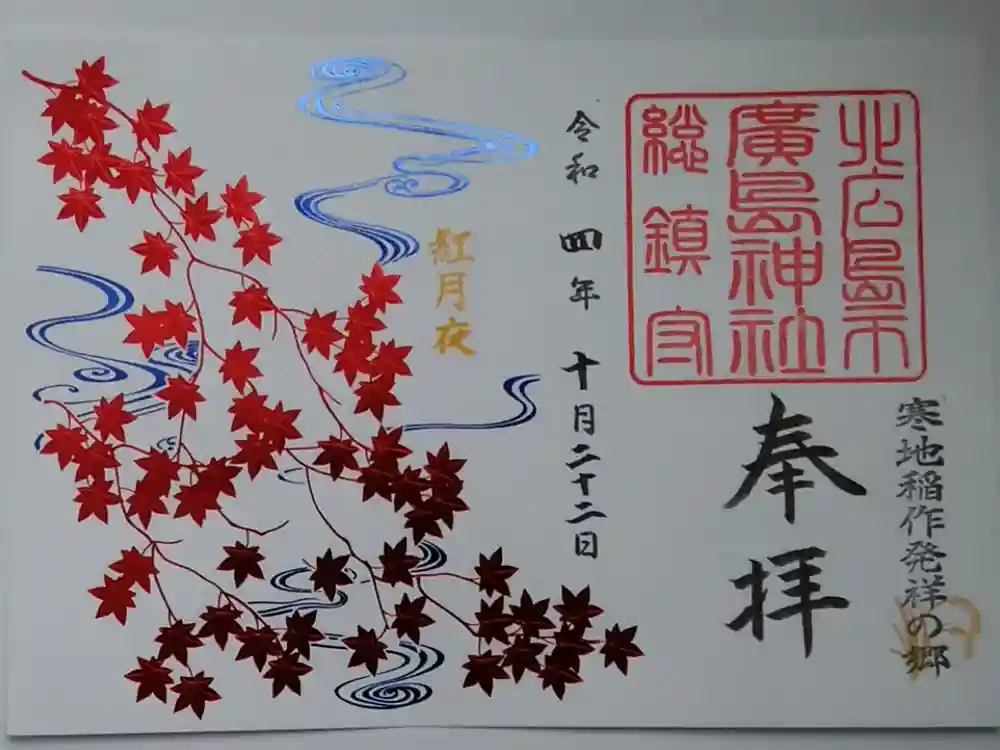 北広島市
廣島神社
総鎮守
寒地稲作発祥の郷
奉拝
令和 四年 十月二十二日
紅月夜